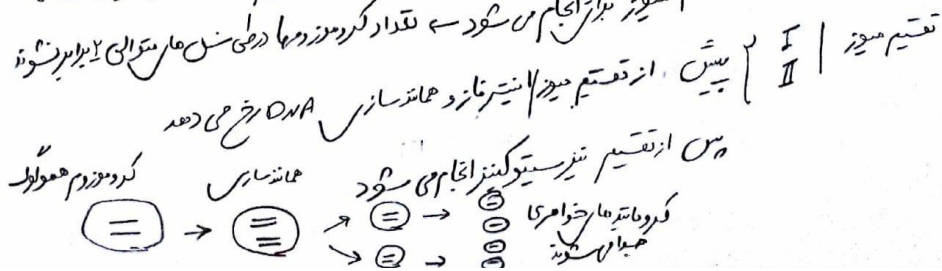 میوز برای انجام می شود ← تعداد کروموزوم ها در طی نسل های متوالی ۲ برابر نشوند
تقسیم میوز I II
پیش از تقسیم میوز I اینترفاز و همانندسازی DNA رخ می دهد
پس از تقسیم نیز سیتوکینز انجام می شود
کروموزوم همولوگ
همانندسازی
کروماتید های خواهری
جدا می شوند